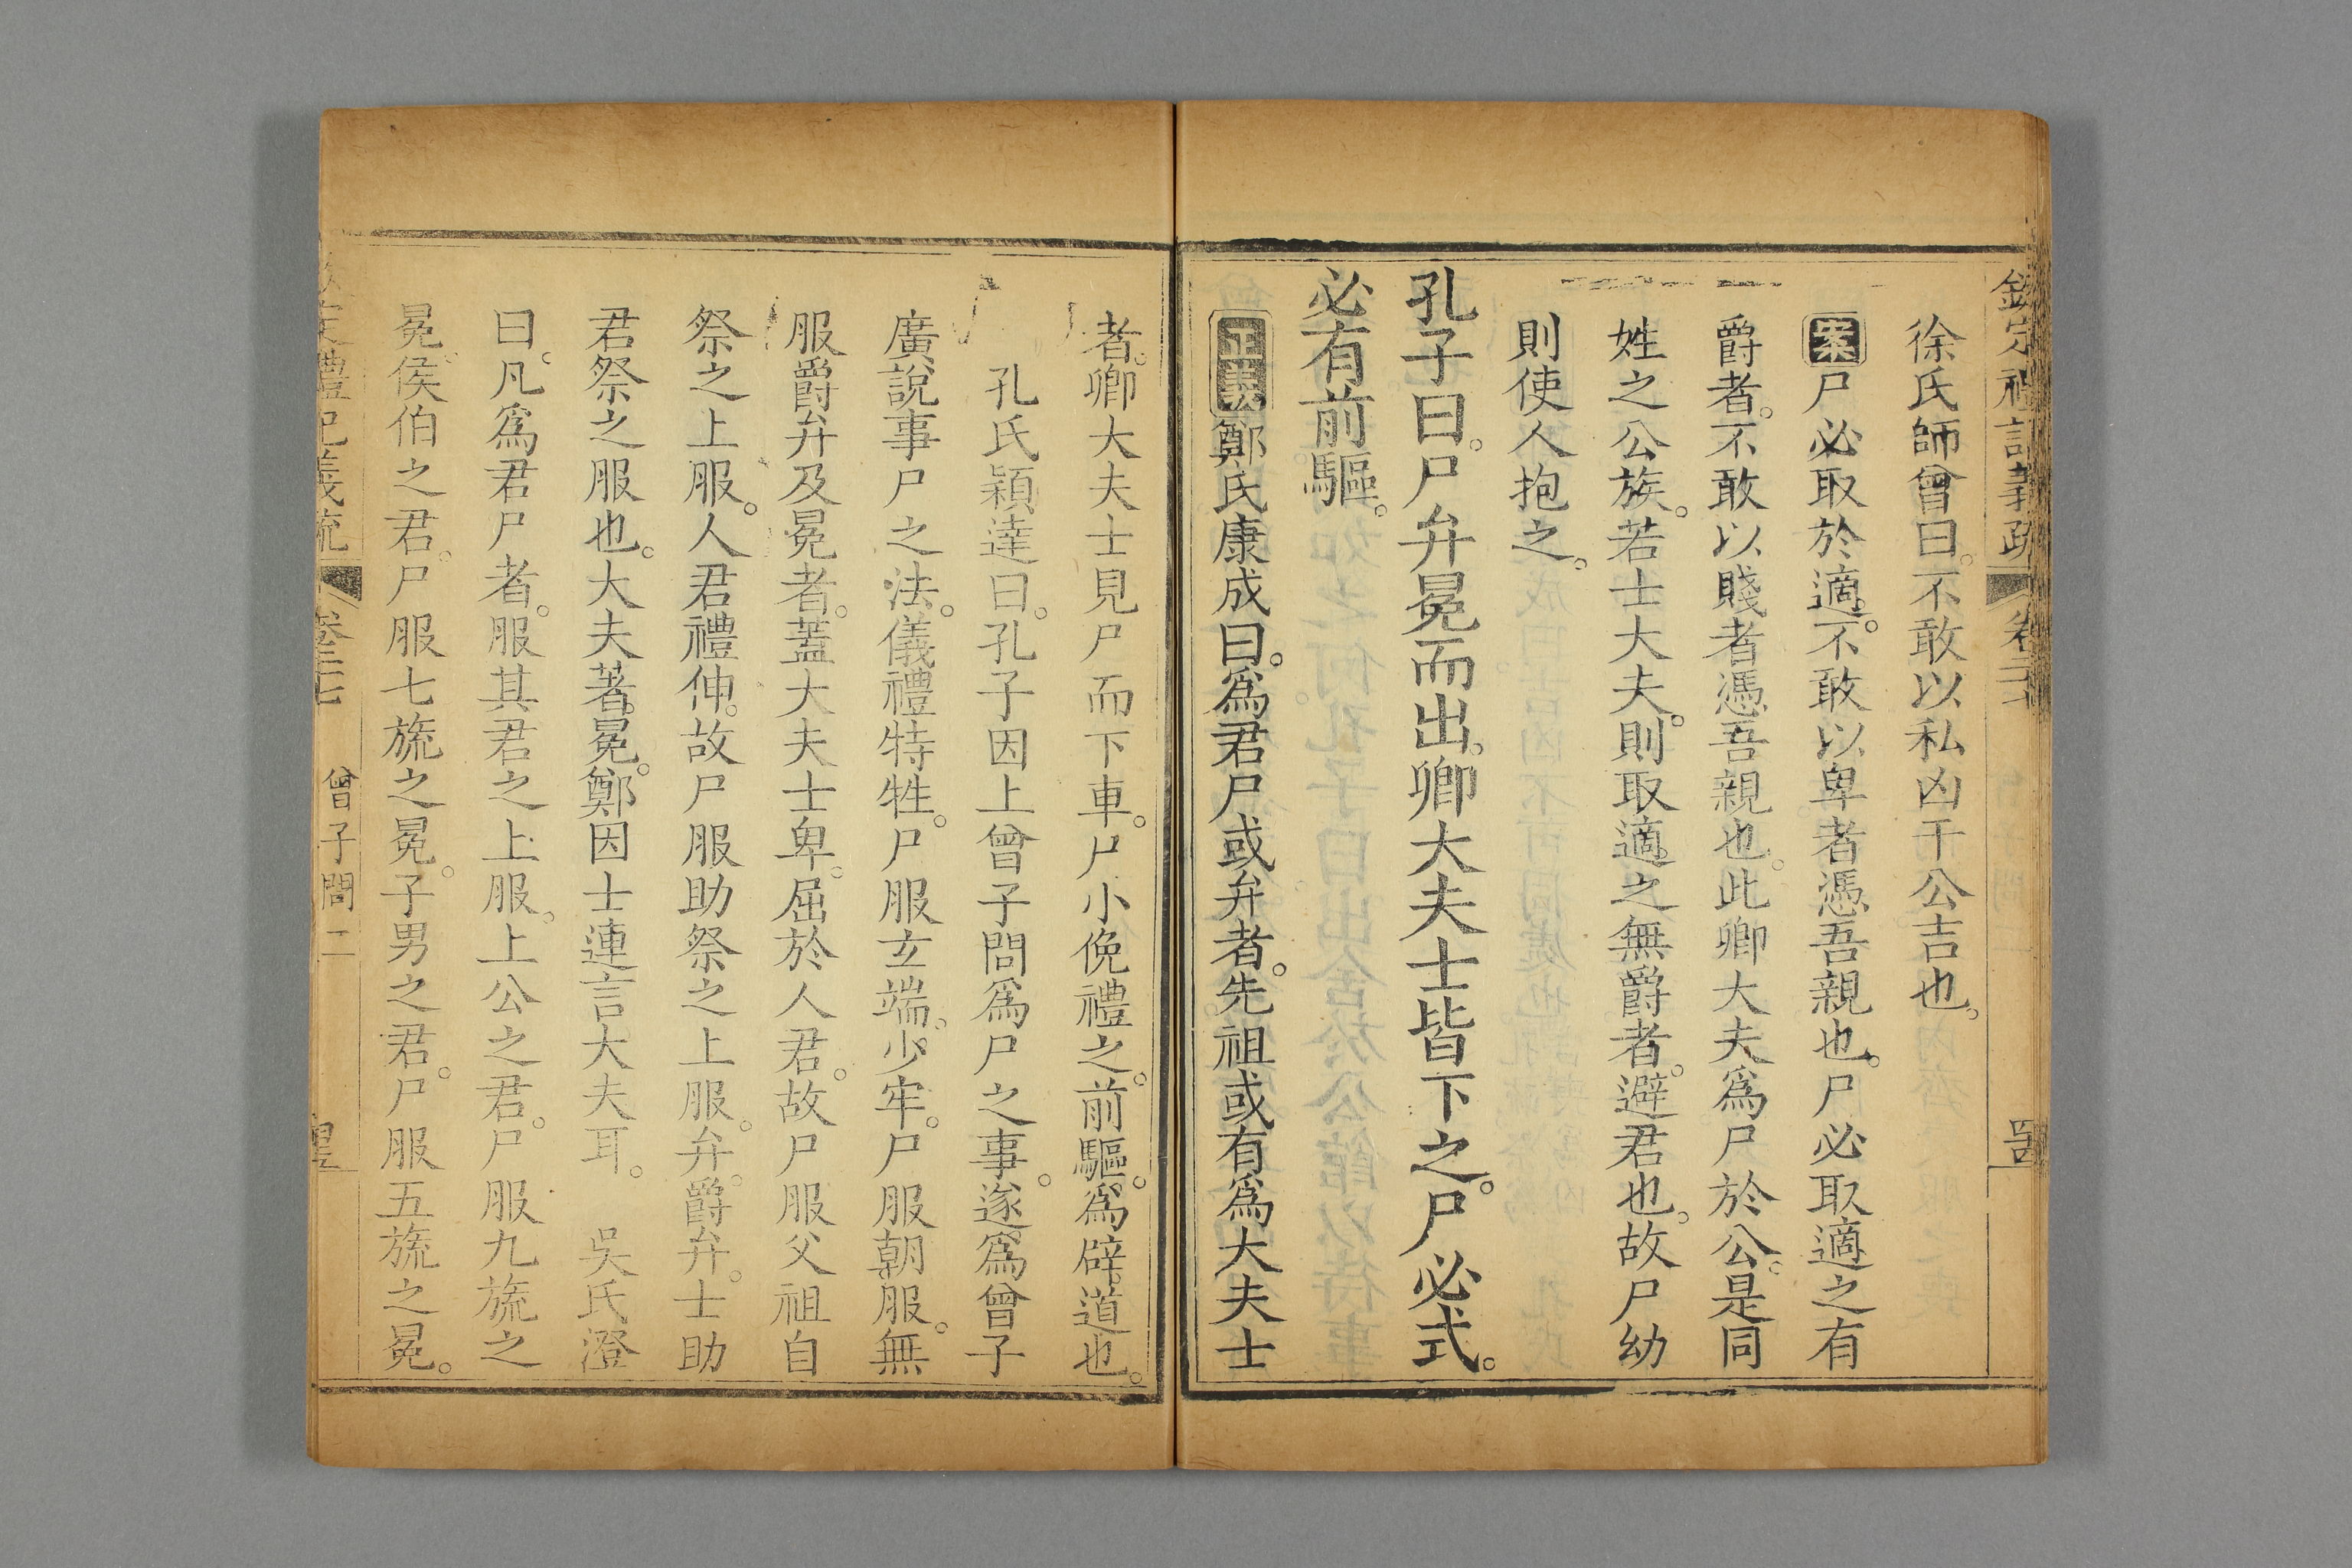 欽定禮記義疏 卷二十七
徐氏師曾曰。不敢以私凶干公吉也。
案尸必取於適。不敢以卑者憑吾親也。尸必取適之有
爵者。不敢以賤者憑吾親也。此卿大夫爲尸於公。是同
姓之公族。若士大夫。則取適之無爵者。避君也。故尸幼
則使人抱之。
孔子曰。尸弁冕而出。卿大夫士皆下之。尸必式。
必有前驅。
正義鄭氏康成曰。爲君尸或弁者。先祖或有爲大夫士
者。卿大夫士見尸而下車。尸小俛禮之。前驅。爲辟道也。
孔氏穎達曰。孔子因上曾子問爲尸之事。遂爲曾子
廣說事尸之法。儀禮特牲。尸服玄端。少牢。尸服朝服。無
服爵弁及冕者。蓋大夫士卑。屈於人君。故尸服父祖自
祭之上服。人君禮伸。故尸服助祭之上服。弁。爵弁。士助
君祭之服也。大夫著冕。鄭因士連言大夫耳。 吳氏澄
曰。凡爲君尸者。服其君之上服。上公之君。尸服九旒之
冕。侯伯之君。尸服七旒之冕。子男之君。尸服五旒之冕。
欽定禮記義疏 卷二十七 曾子問二